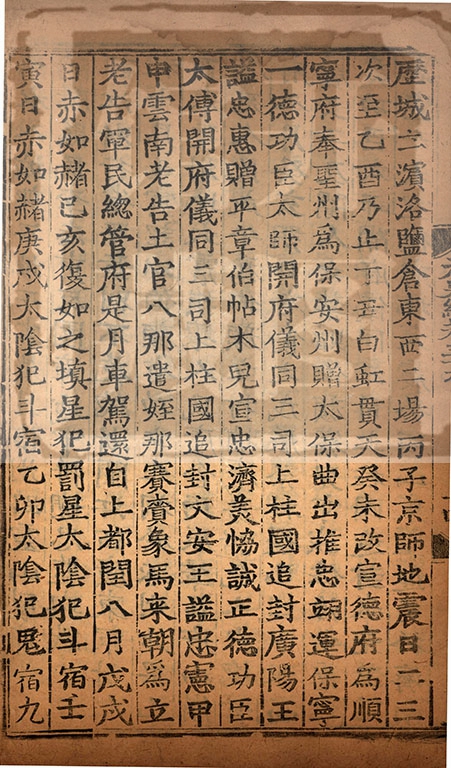 塵城二濵洛鹽倉東西二塲丙子京師地震日二三
次至乙酉乃止丁丑白虹貫天癸未改宣德府爲順
寧府奉聖州爲保安州贈太保曲出推忠翊運保寧
一德功臣太師開府儀同三司上柱國追封廣陽王
謚忠惠贈平章伯帖木兒宣忠濟美恊誠正德功臣
太傅開府儀同三司上柱國追封文安王謚忠憲甲
申雲南老告土官八那遣姪那賽賫象馬来朝爲立
老告軍民緫管府是月車駕還自上都閏八月戊戌
日赤如赭己亥復如之填星犯罰星太陰犯斗宿壬
寅日赤如赭庚戌太陰犯斗宿乙卯太陰犯鬼宿九